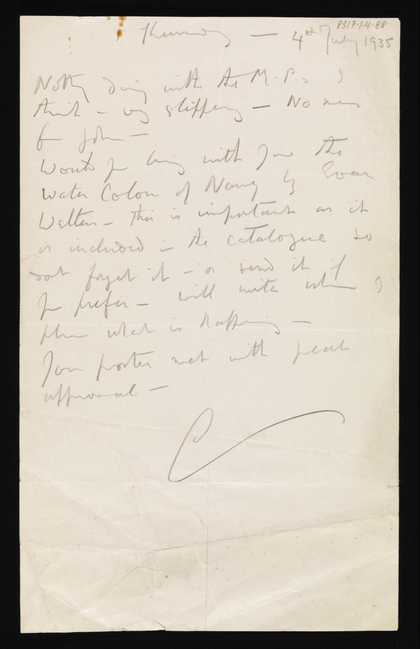 Thursday — 4th July 1935
Nothing doing with the M.P.s I
think — very slippery — No news
from John —
Would you bring with you the
Water Colour of Nancy by Evan
Walters — this is important as it
is included in the catalogue so
dont forget it — or send it if
you prefer — will write when I
what is happening —
Your poster met with great
approval —
C